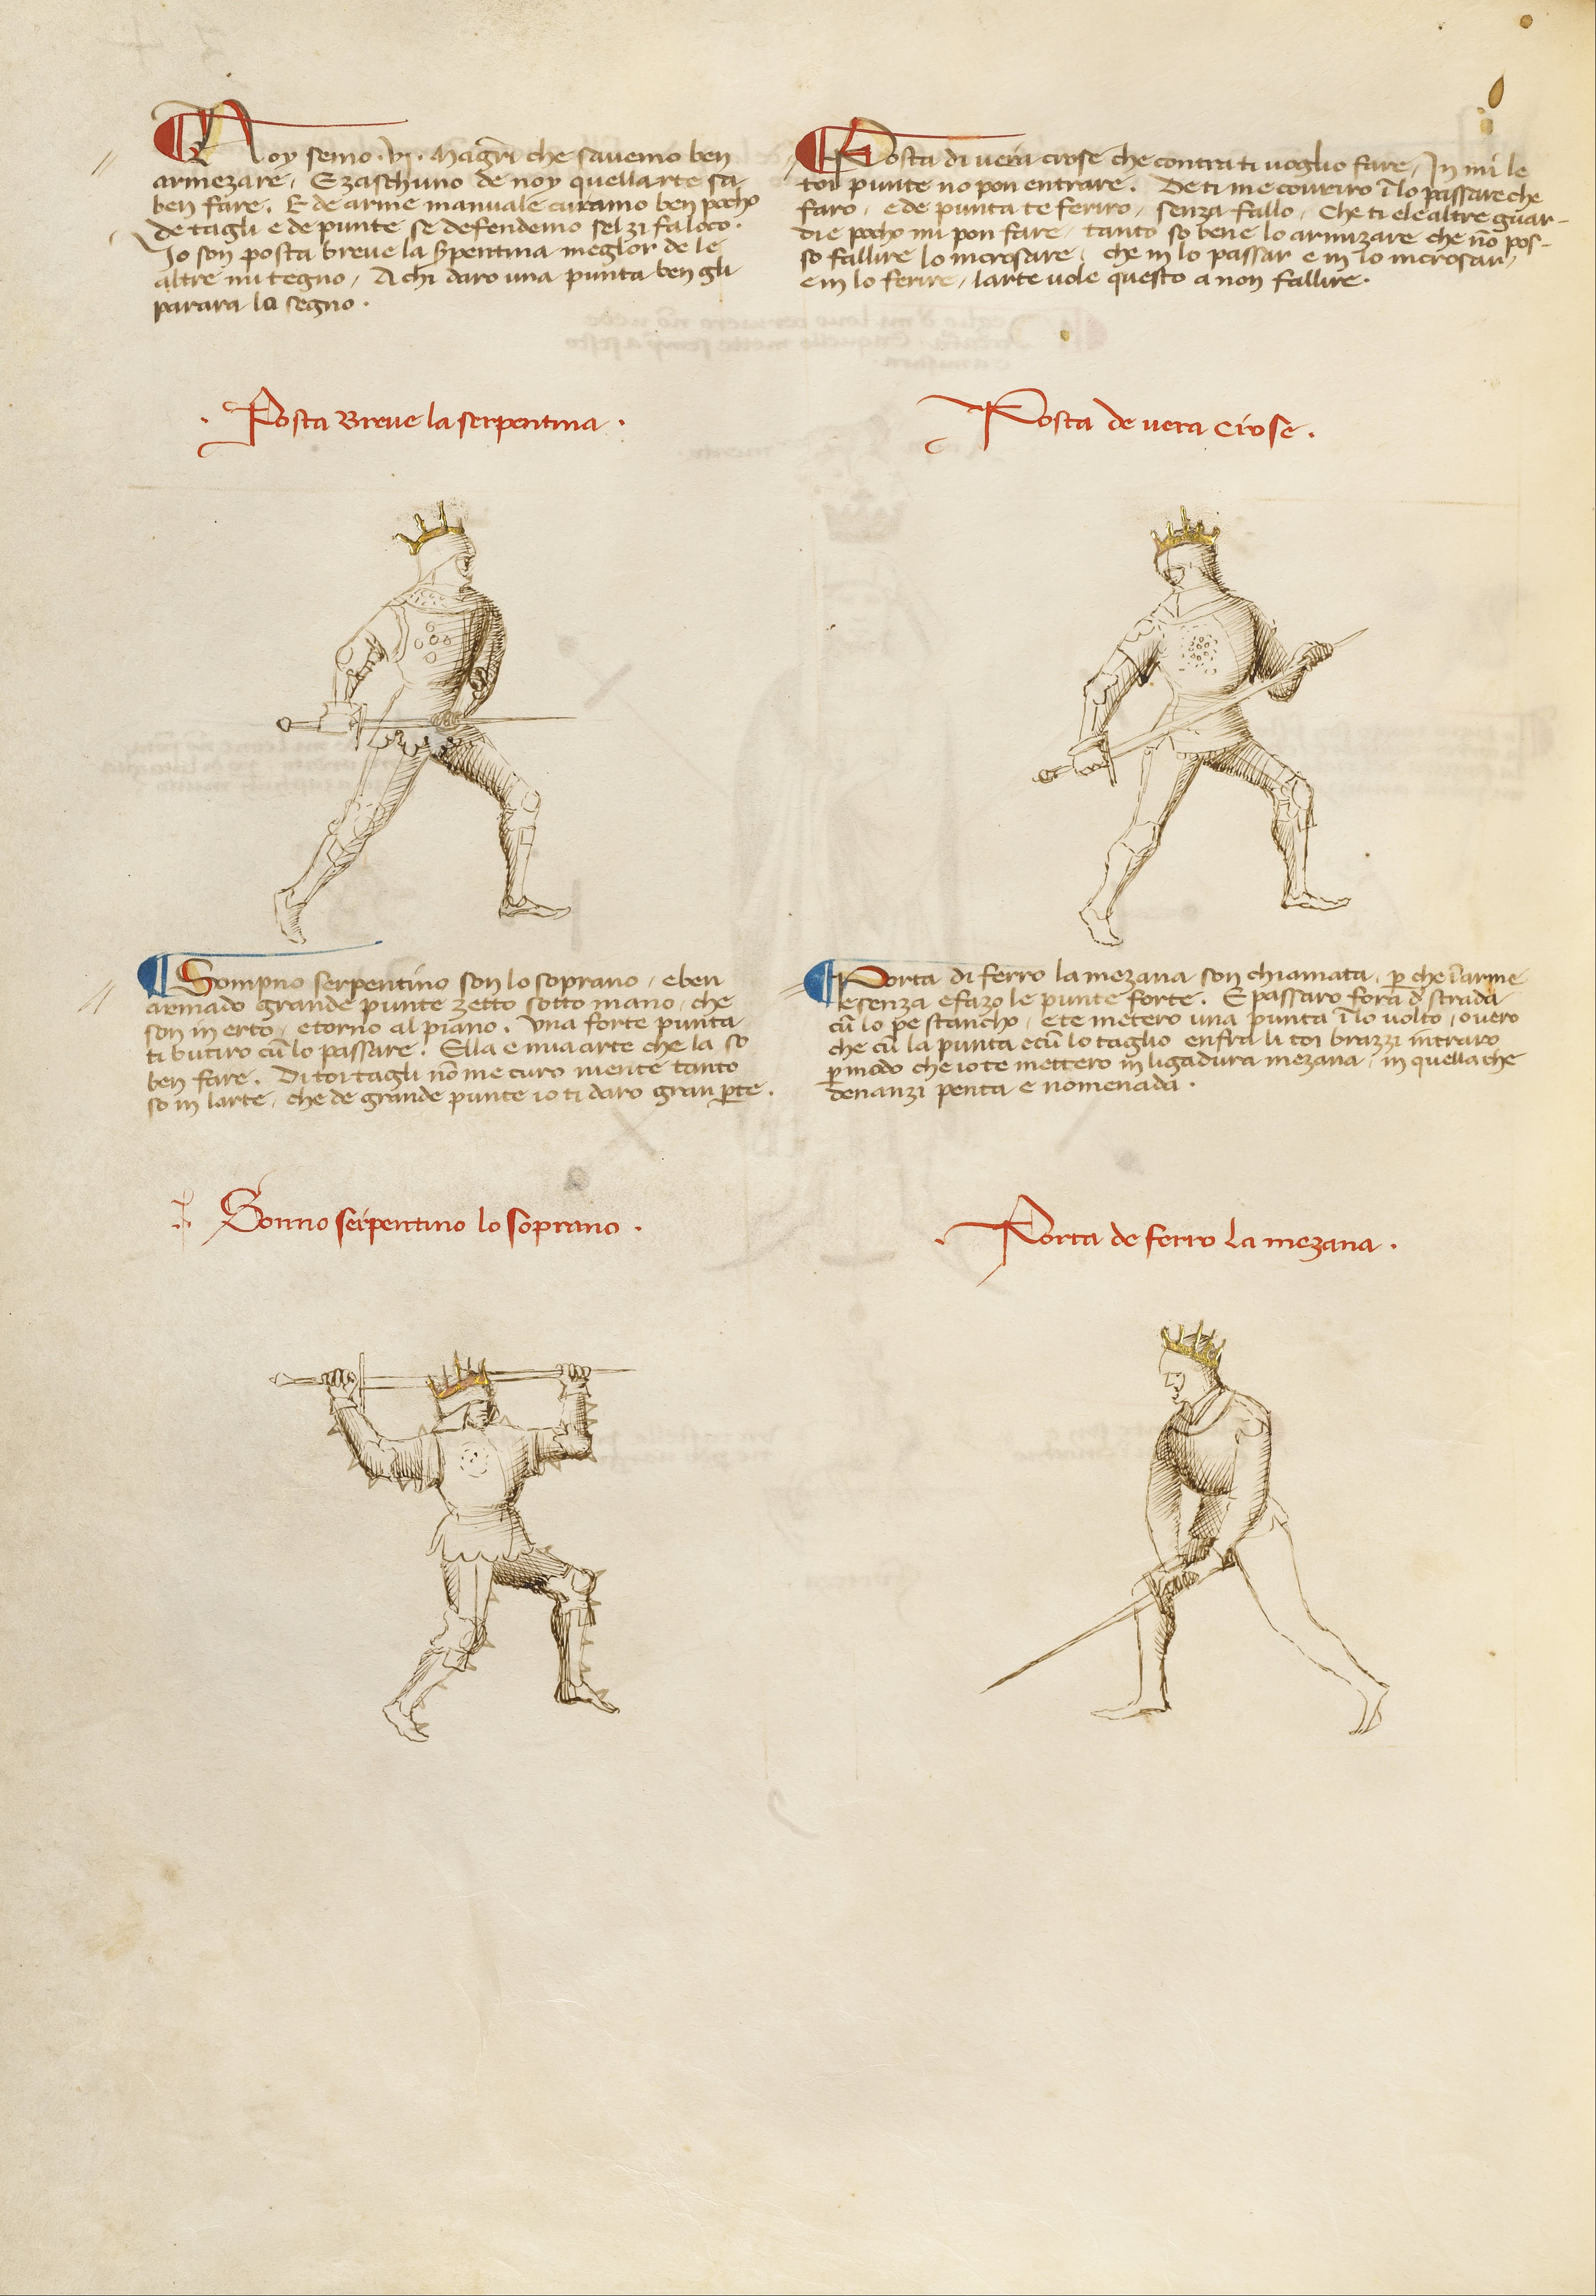 Noy semo .vj. Magrī che savemo ben
armezare, E zaschuno de noy quellarte sa
ben fare. E de arme manuale curamo ben pocho
de tagli e de punte se defendemo sel zi fa loco.
Io son posta breve la spentina meglor de le
altre mi tegno, A chi daro una punta ben gli
parara lo segno.
Posta Breve la serpentina.
Sompno serpentino son lo soprano, e ben
armado grande punte zetto sotto mano, che
son in erto, e torno al piano. Una forte punta
ti butiro cū lo passare. Ella e mia arte che la so
ben fare. Di toi tagli nō me curo niente tanto
so in larte, che de grande punte io ti daro gran pte.
Sonno serpentino lo soprano.
Posta di vera crose che contra ti voglio fare, In mi le
toi punte no pon entrare. De ti me covriro ī lo passare che
faro, e de punta te feriro, senza fallo, Che ti e le altre guar-
die pocho mi pon fare, tanto so bene lo armizare che nō pos-
so fallire lo incrosare, che in lo passar e in lo incrosar,
e in lo ferire, larte vole questo a non fallire.
Posta de vera crose.
Porta di ferro la mezana son chiamata, p che ī arme
e senza e fazo le punte forte. E passaro fora d strada
cū lo pe stancho, e te metero una punta ī lo volto, overo
che cū la punta e cū lo taglio enfra li toi brazzi intraro
p modo che io te mettero in ligadura mezana, in quella che
denanzi penta e nomenada.
Porta de ferro la mezana.